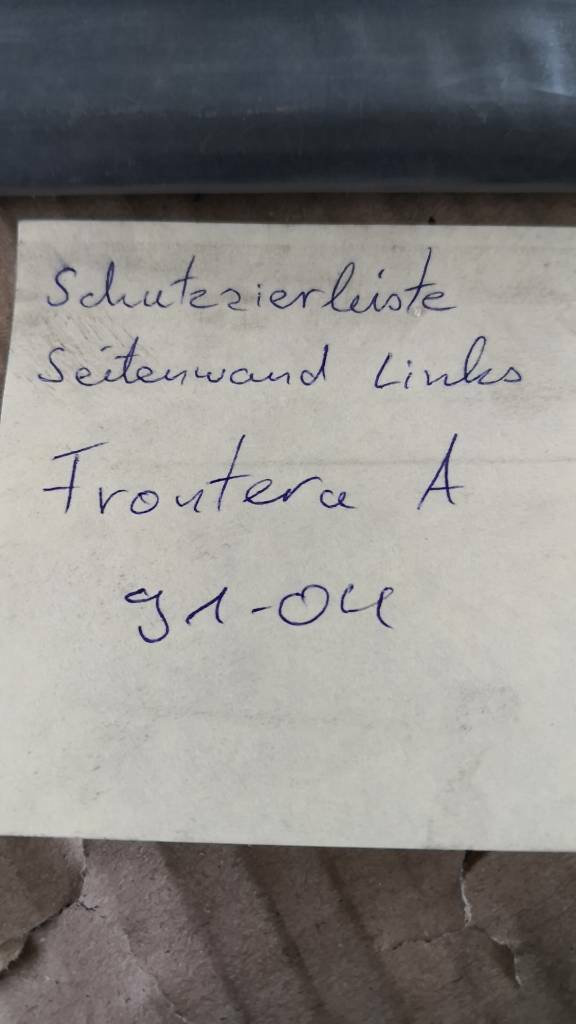 Schutzzierleiste
Seitenwand Links
Frontera A
91-04